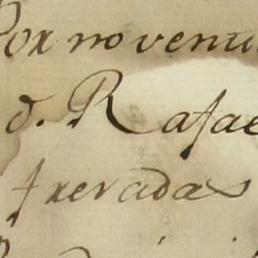 Por no venu
d. Rafae
frevadas